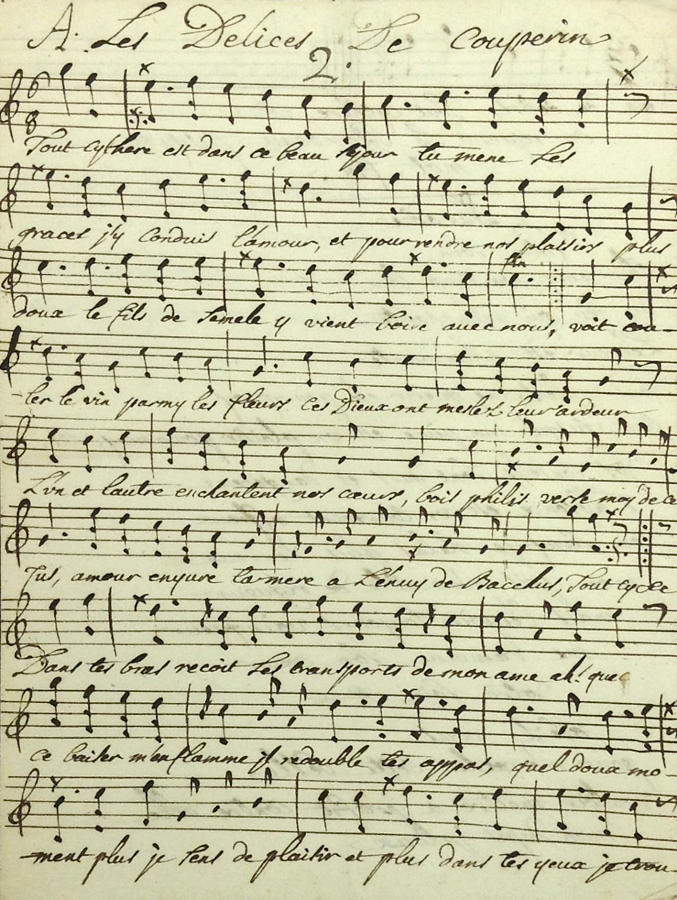 A. Les Delices De Couperin
2.
6
8
Tout cythere est dans ce beau sejour tu mene les
graces j'y conduis l'amour, et pour rendre nos plaisirs plus
fin
doux le fils de Semele y vient boire avec nous, voit cou-
-ler le vin parmy les fleurs ces Dieux ont meslez leur ardeur
L'vn et lautre enchantent nos cœurs, bois philis verse moy de ce
Jus, amour enyure ta mere a L'enuy de Bacchus, Tout cy &c
Dans tes bras recoit Les transports de mon ame ah! que
ce baiser m'enflamme jl redouble tes appas, quel doux mo-
-ment plus je sens de plaisir et plus dans tes yeux je trou-